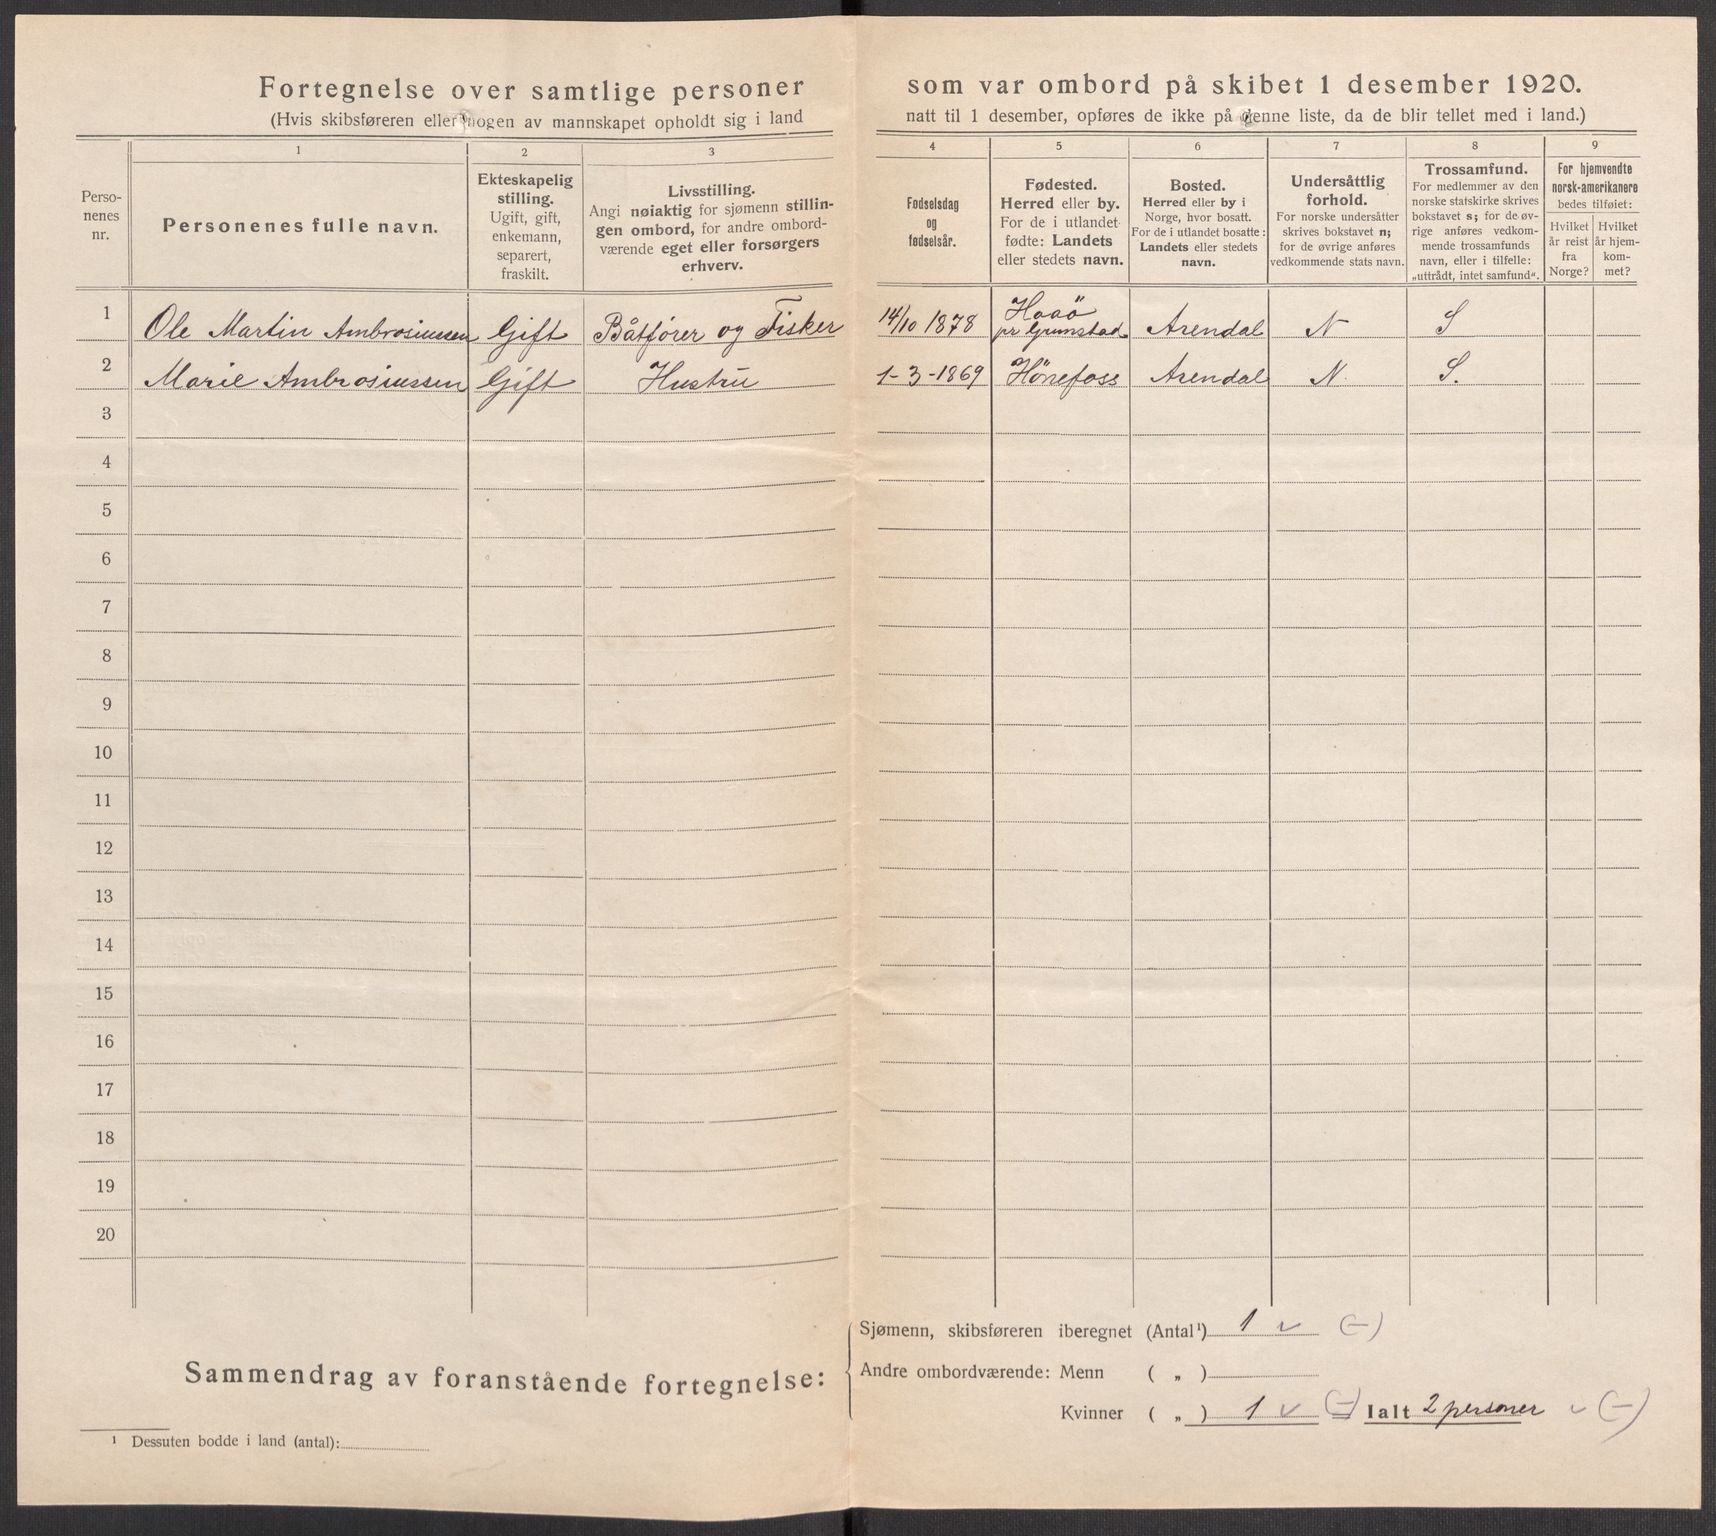 Fortegnelse over samtlige personer som var ombord på skibet 1 desember 1920.
(Hvis skibsføreren eller nogen av mannskapet opholdt sig i land natt til 1 desember, opføres de ikke på denne liste, da de blir tellet med i land.)
Perso-
nenes
nr.
1
Personenes fulle navn.
2
Ekteskapelig
stilling.
Ugift, gift,
enkemann,
separert,
fraskilt.
3
Livsstilling.
Angi nøiaktig for sjømenn stillin-
gen ombord, for andre ombord-
værende eget eller forsørgers
erhverv.
4
Fødselsdag
og
fødselsår.
5
Fødested.
Herred eller by.
For de i utlandet
fødte: Landets
eller stedets navn.
6
Bosted.
Herred eller by i
Norge, hvor bosatt.
For de i utlandet bosatte:
Landets eller stedets
navn.
7
Undersåttlig
forhold.
For norske undersåtter
skrives bokstavet n;
for de øvrige anføres
vedkommende stats navn.
8
Trossamfund.
For medlemmer av den
norske statskirke skrives
bokstavet s; for de øv-
rige anføres vedkom-
mende trossamfunds
navn, eller i tilfelle:
„uttrådt, intet samfund“.
9
For hjemvendte
norsk-amerikanere
bedes tilføiet:
Hvilket
år reist
fra
Norge?
Hvilket
år hjem-
kom-
met?
1 Ole Martin Ambrosiussen Gift Båtfører og Fisker 14/10 1878 Haaö pr Grimstad Arendal N S
2 Marie Ambrosiussen Gift Hustru 1-3-1869 Hönefoss Arendal N. S.
3
4
5
6
7
8
9
10
11
12
13
14
15
16
17
18
19
20
Sammendrag av foranstående fortegnelse:
Sjømenn, skibsføreren iberegnet (Antal¹) 1 v (-)
Andre ombordværende: Menn ( „ )
Kvinner ( „ ) 1 v (-) = Ialt 2 personer v (-)
¹ Dessuten bodde i land (antal):